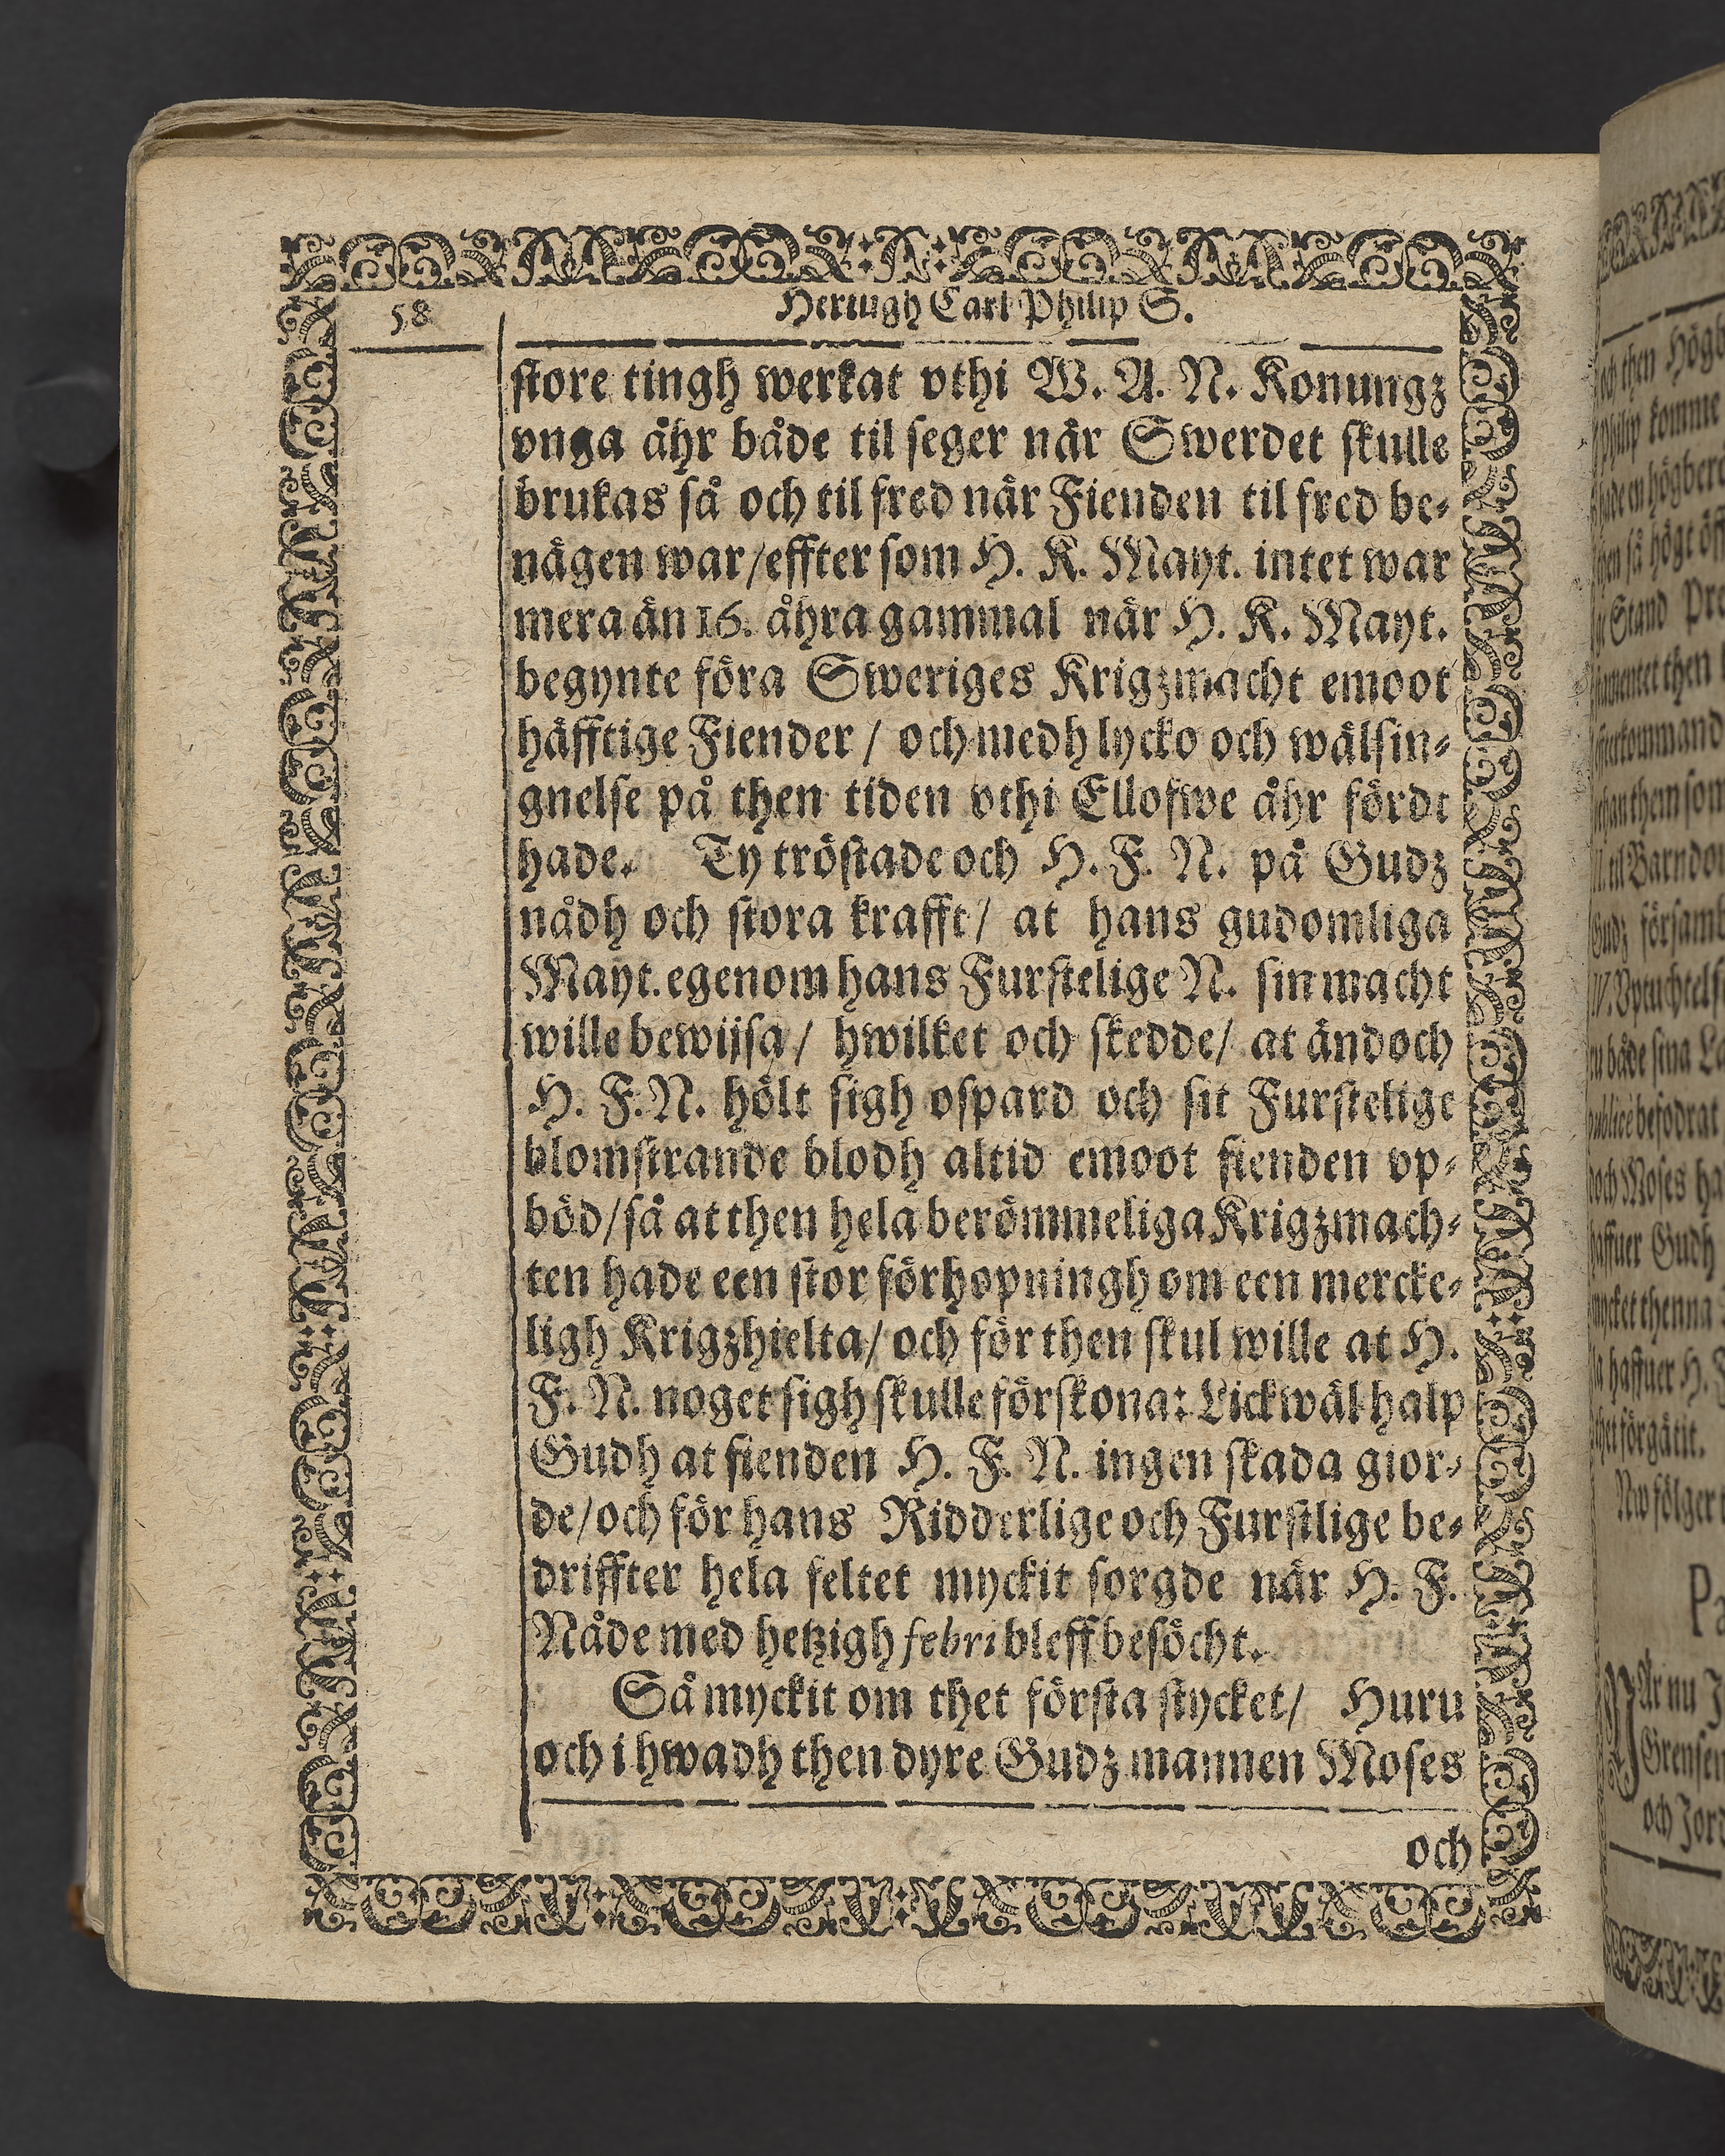 58
Hertigh Carl Philip S.
store tingh werkat vthi W. A. N. Konungz
vnga åhr både til seger när Swerdet skulle
brukas så och til fred när Fienden til fred be-
nägen war/effter som H. K. Mayt. intet war
mera än 16. åhra gammal när H. K. Mayt.
begynte föra Sweriges Krigzmacht emoot
häfftige Fiender / och medh lycko och wälsin-
gnelse på then tiden vthi Ellofwe åhr fördt
hade. Ty tröstade och H. F. N. på Gudz
nådh och stora krafft/ at hans gudomliga
Mayt. egenom hans Furstelige N. sin macht
wille bewijsa/ hwilket och skedde/ at ändoch
H. F. N. hölt sigh ospard och sit Furstelige
blomstrande blodh altid emoot fienden vp-
böd/så at then hela berömmeliga Krigzmach-
ten hade een stor förhopningh om een mercke-
ligh Krigzhielta/ och för then skul wille at H.
F. N. noget sigh skulle förskona: Lickwäl halp
Gudh at fienden H. F. N. ingen skada gior-
de/och för hans Ridderlige och Furstlige be-
driffter hela feltet myckit sorgde när H. F.
Nåde med hetzigh febri bleff besöcht.
Så myckit om thet första stycket/ Huru
och i hwadh then dyre Gudz mannen Moses
och
och then Högb
Philip komme
hen så högt öff
Stand
them som
Gudz församl
både sina
befodrat
och Moses ha
haffuer Gudh
mycket thenna
haffuer H. F
thet förgätit.
Nw fölger
Pa
När nu J
Grensen
och Jord